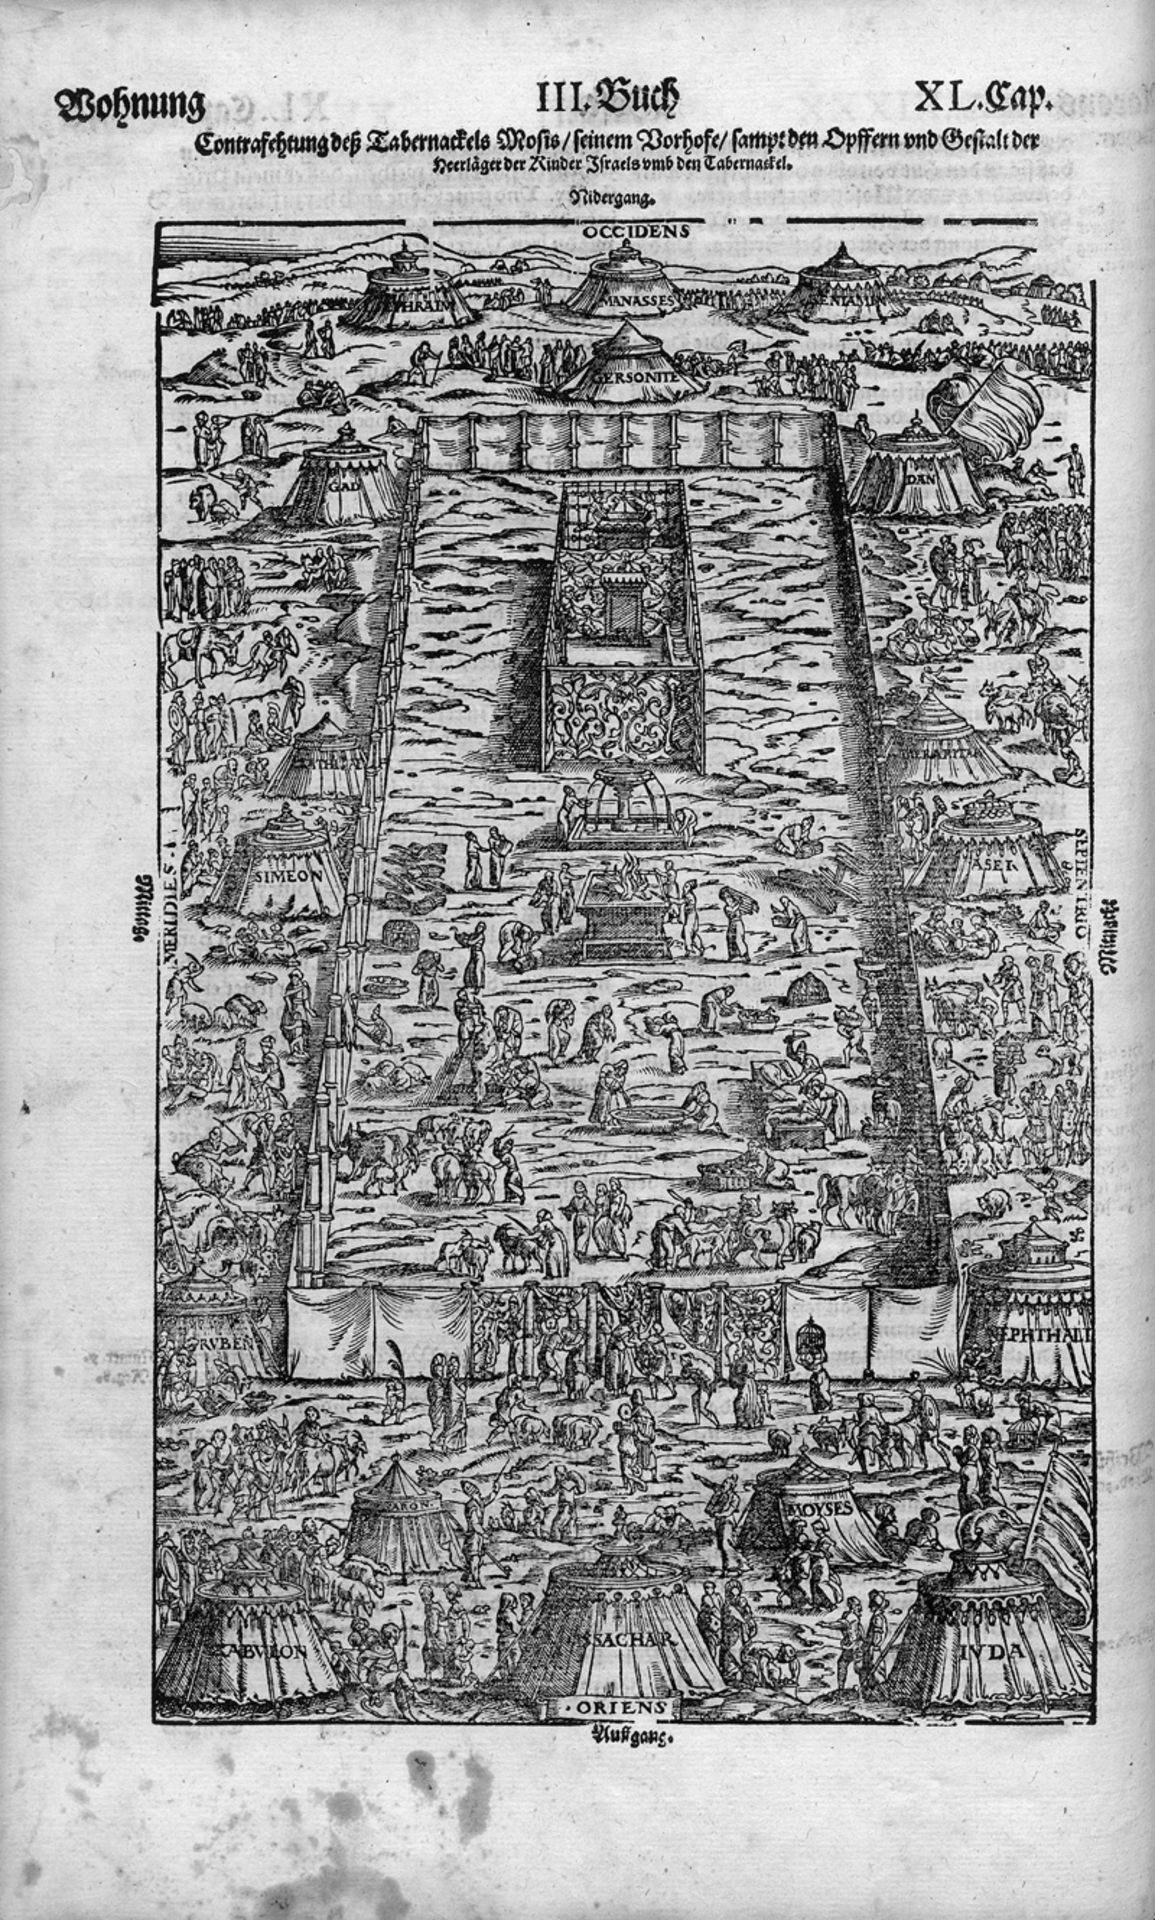 Wohnung III. Buch XL. Cap.
Contrafehtung deß Tabernackels Mosis / seinem Vorhofe / sampt den Opffern vnd Gestalt der
Heerläger der Kinder Jsraels vmb den Tabernackel.
Nidergang.
OCCIDENS
PHRAIM
MANASSES
BENIAMIN
GERSONITE
GAD
DAN
MERARITAE
SIMEON
ASER
MERIDIES
Mittag.
SEPTENTRIO
Mittnacht
RVBEN
NEPHTHALI
AARON.
MOYSES
ZABVLON
ISSACHAR
IVDA
· ORIENS
Auffgang.